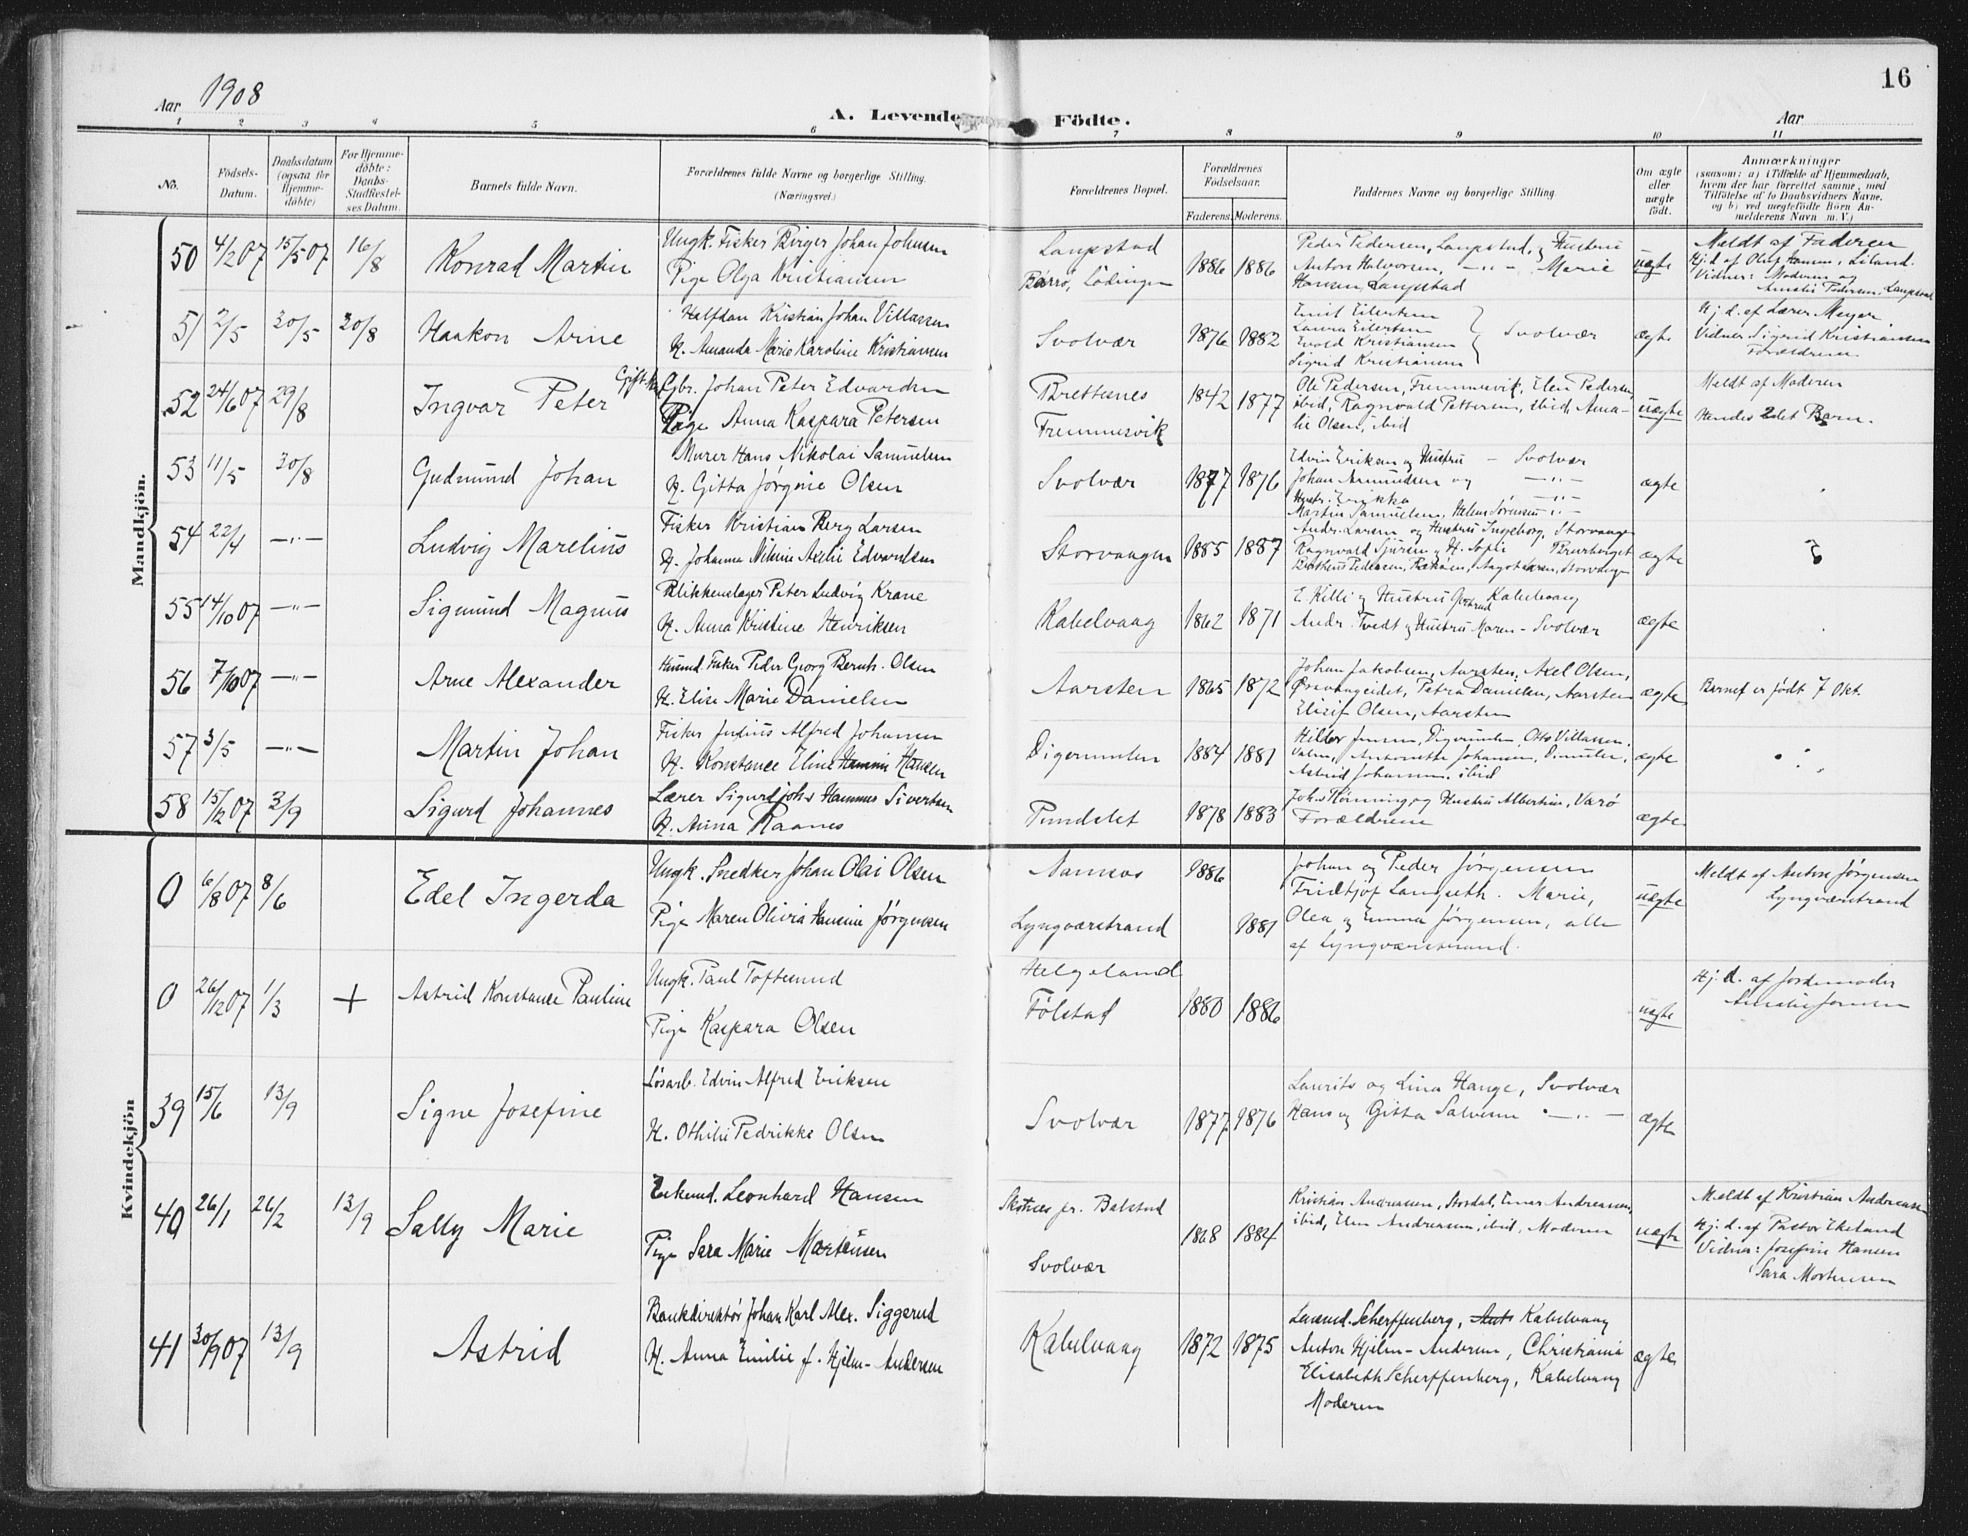 Aar 1908
A. Levende Födte.
Aar
16
1 2 3 4 5 6 7 8 9 10 11
No.
Födsels-Datum.
Daabsdatum (ogsaa for Hjemme-döbte)
For Hjemme-döbte: Daabs-Stadfæstel-ses Datum.
Barnets fulde Navn.
Forældrenes fulde Navne og borgerlige Stilling. (Næringsvei.)
Forældrenes Bopæl.
Forældrenes Födselsaar.
Faderens. Moderens.
Faddernes Navne og borgerlige Stilling.
Om ægte eller uægte födt.
Anmærkninger
(saasom: a) i Tilfælde af Hjemmedaab, hvem der har forrettet samme, med Tilföielse af to Daabsvidners Navne, og b) ved uægtefödte Börn An-melderens Navn m. V.)
Mandkjön.
50 4/2 07 15/5 07 16/8 Konrad Martin
Ungk. Fisker Birger Johan Johnsen
Pige Olga Kristiansen
Laupstad
Børrø, Lödingen
1886 1886
Peder Pedersen, Laupstad, og Hustru
Anton Halvorsen, —"— Marie
Hansen, Laupstad
uægte
Meldt af Faderen
Hj. d. af Oluf Hansen, Liland.
Vidner: Moderen og
Amalie Pedersen, Laupstad
51 2/5 30/5 30/8 Haakon Arne
Halfdan Kristian Johan Villassen
H. Amanda Marie Karoline Kristiansen
Svolvær
1876 1882
Emil Eilertsen
Laura Eilertsen
Evold Kristiansen
Sigrid Kristiansen
Svolvær
ægte
Hj. d. af Lærer Meyer
Vidner Sigrid Kristiansen
Forældrene
52 24/6 07 29/8 Ingvar Peter
Gift Gbr. Johan Peter Edvardsen
Pige Anna Kaspara Petersen
Brettesnes
Fremmesvik
1842 1877
Ole Pedersen, Fremmesvik, Elen Pedersen
ibid, Ragnvald Pettersen, ibid, Ama-
lie Olsen, ibid
uægte
Meldt af Moderen
Hendes 2det Barn.
53 11/5 30/8 Gudmund Johan
Murer Hans Nikolai Samuelsen
H. Gitta Jørgine Olsen
Svolvær
1877 1876
Edvin Eriksen og Hustru — Svolvær
Johan Asmundsen og —"—
Hustr. Erikka —"—
Martin Samuelsen, Helene Sørensen —"—
ægte
54 22/4 —"— Ludvig Marelius
Fisker Kristian Berg Larsen
H. Johanna Nilsine Axelie Edvardsen
Storvaagen
1885 1887
Andr. Larsen og Hustru Ingeborg, Storvaagen
Ragnvald Sjursen og H. Sofie
Pedersen, Aagot Larsen, Storvaagen
ægte
55 14/10 07 —"— Sigmund Magnus
Blikkenslager Peter Ludvig Krane
H. Anna Kristine Henriksen
Kabelvaag
1862 1871
E. Killi og Hustru Gjertrud Kabelvaag
Andr. Tvedt og Hustru Maren — Svolvær
ægte
56 7/10 07 —"— Arne Alexander
Husmd. Fisker Peder Georg Bernh. Olsen
H. Elise Marie Danielsen
Aarsten
1865 1872
Johan Jakobsen, Aarsten, Axel Olsen,
Ørsvaageidet, Petra Danielsen, Aarsten
Elisif Olsen, Aarsten
ægte
Barnet er født 7 Okt.
57 3/5 —"— Martin Johan
Fisker Julius Alfred Johansen
H. Konstance Eline Hansen
Digermulen
1884 1881
Jensen, Digermulen, Otto Villassen,
Antonette Johansen, Dimulen,
Astrid Johansen, ibid
ægte
58 15/12 07 3/9 Sigurd Johannes
Lærer Sigurd Johs Hammer Sivertsen
H. Anna Raanes
Pundslet
1878 1883
Johs Rönning og Hustru Albertine, Varö
Forældrene
ægte
Kvindekjön
0 6/8 07 8/6 Edel Ingerda
Ungk. Snedker Johan Olai Olsen
Pige Maren Olivia Hansine Jörgensen
Namsos
Lyngværstrand
1886 1881
Johan og Peder Jörgensen
Fridtjof Langseth. Marie,
Olea og Emma Jörgensen, alle
af Lyngværstrand.
uægte
Meldt af Anton Jörgensen
Lyngværstrand
0 26/12 07 1/3 + Astrid Konstanse Pauline
Ungk. Paul Toftesund
Pige Kaspara Olsen
Helgeland
Følstad
1880 1886
uægte
Hj. d. af Jordemoder
Amalie Jensen
39 15/6 13/9 Signe Josefine
Løsarb. Edvin Alfred Eriksen
H. Othilie Fedrikke Olsen
Svolvær
1877 1876
Laurits og Lina Hauge, Svolvær
Hans og Gitta —"—
ægte
40 26/1 26/2 13/9 Sally Marie
Enkemd. Leonhard Hansen
Pige Sara Marie Mortensen
Skotnes pr. Balstad
Svolvær
1868 1884
Kristian Andreassen, Stordal, Einar Andreassen,
ibid, Elen Andreassen, ibid, Moderen
uægte
Meldt af Kristian Andreassen
Hj. d. af Pastor Ekeland
Vidner: Josefine Hansen
Sara Mortensen
41 30/9 07 13/9 Astrid
Bankdirektör Johan Karl Alex. Siggerud
H. Anna Emilie f. Hjelm-Andersen
Kabelvaag
1872 1875
Lensmd. Scherffenberg, Kabelvaag
Anton Hjelm-Andersen, Christiania
Elisabeth Scherffenberg, Kabelvaag
Moderen
ægte